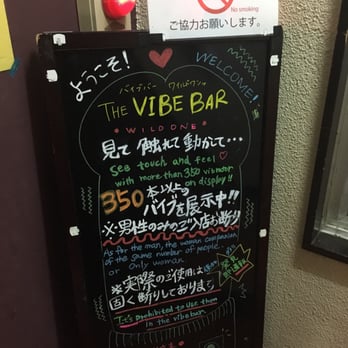 No smoking
ご協力お願いします。
ようこそ!
WELCOME!
バイブバー ワイルドワン
THE VIBE BAR
WILD ONE
見て 触れて 動かして…
See touch and feel
with more than 350
on display!!
350本以上の
バイブを展示中!!
※男性のみのご入店お断り
As for the man, the woman companion
of the same number of people.
or Only woman.
※実際のご使用は
固く断りしております
It's prohibited to use them
in the vibe bar.